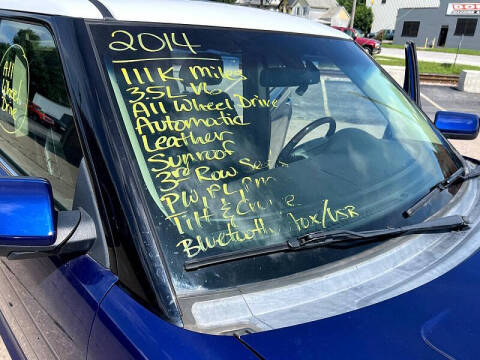 2014
111K miles
3.5L V6
All Wheel Drive
Automatic
Leather
Sunroof
3rd Row Seats
PW, PL, PM
Tilt & Cruise
Bluetooth/Aux/USB
All
Wheel
Drive